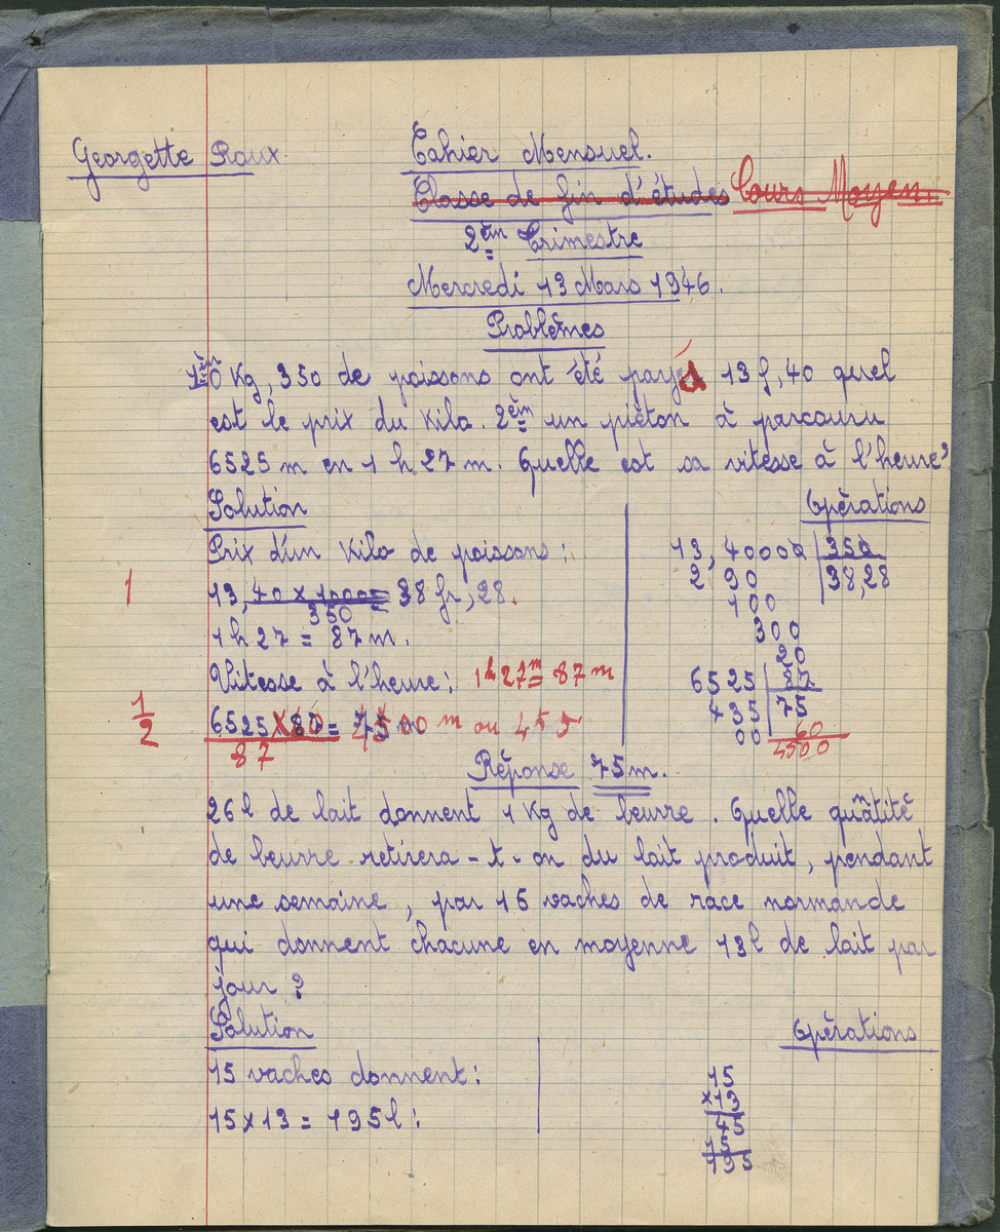 Georgette Roux
Cahier Mensuel.
Classe de fin d'études Cours Moyen.
2èm Trimestre
Mercredi 13 Mars 1946.
Problèmes
1èm 0 Kg, 350 de poissons ont été payés 13 f, 40 quel
est le prix du Kilo. 2èm un piéton à parcouru
6525 m en 1 h 27 m. Quelle est sa vitesse à l'heure?
Solution
Opérations
Prix d'un Kilo de poissons :
1
13,40 x 1000 = 38 fr, 28.
350
1 h 27 = 87 m.
Vitesse à l'heure : 1h 27m = 87 m
1/2
6525 x 60 = 4500 m ou
87
13,40000 | 350
2 90 | 38,28
100
300
20
6525 | 87
435 | 75
00 60
4500
Réponse 75 m.
26 l de lait donnent 1 Kg de beurre. Quelle quãtité
de beurre retirera-t-on du lait produit, pendant
une semaine, par 15 vaches de race normande
qui donnent chacune en moyenne 13 l de lait par
jour ?
Solution
Opérations
15 vaches donnent :
15 x 13 = 195 l :
15
x 13
45
15
195